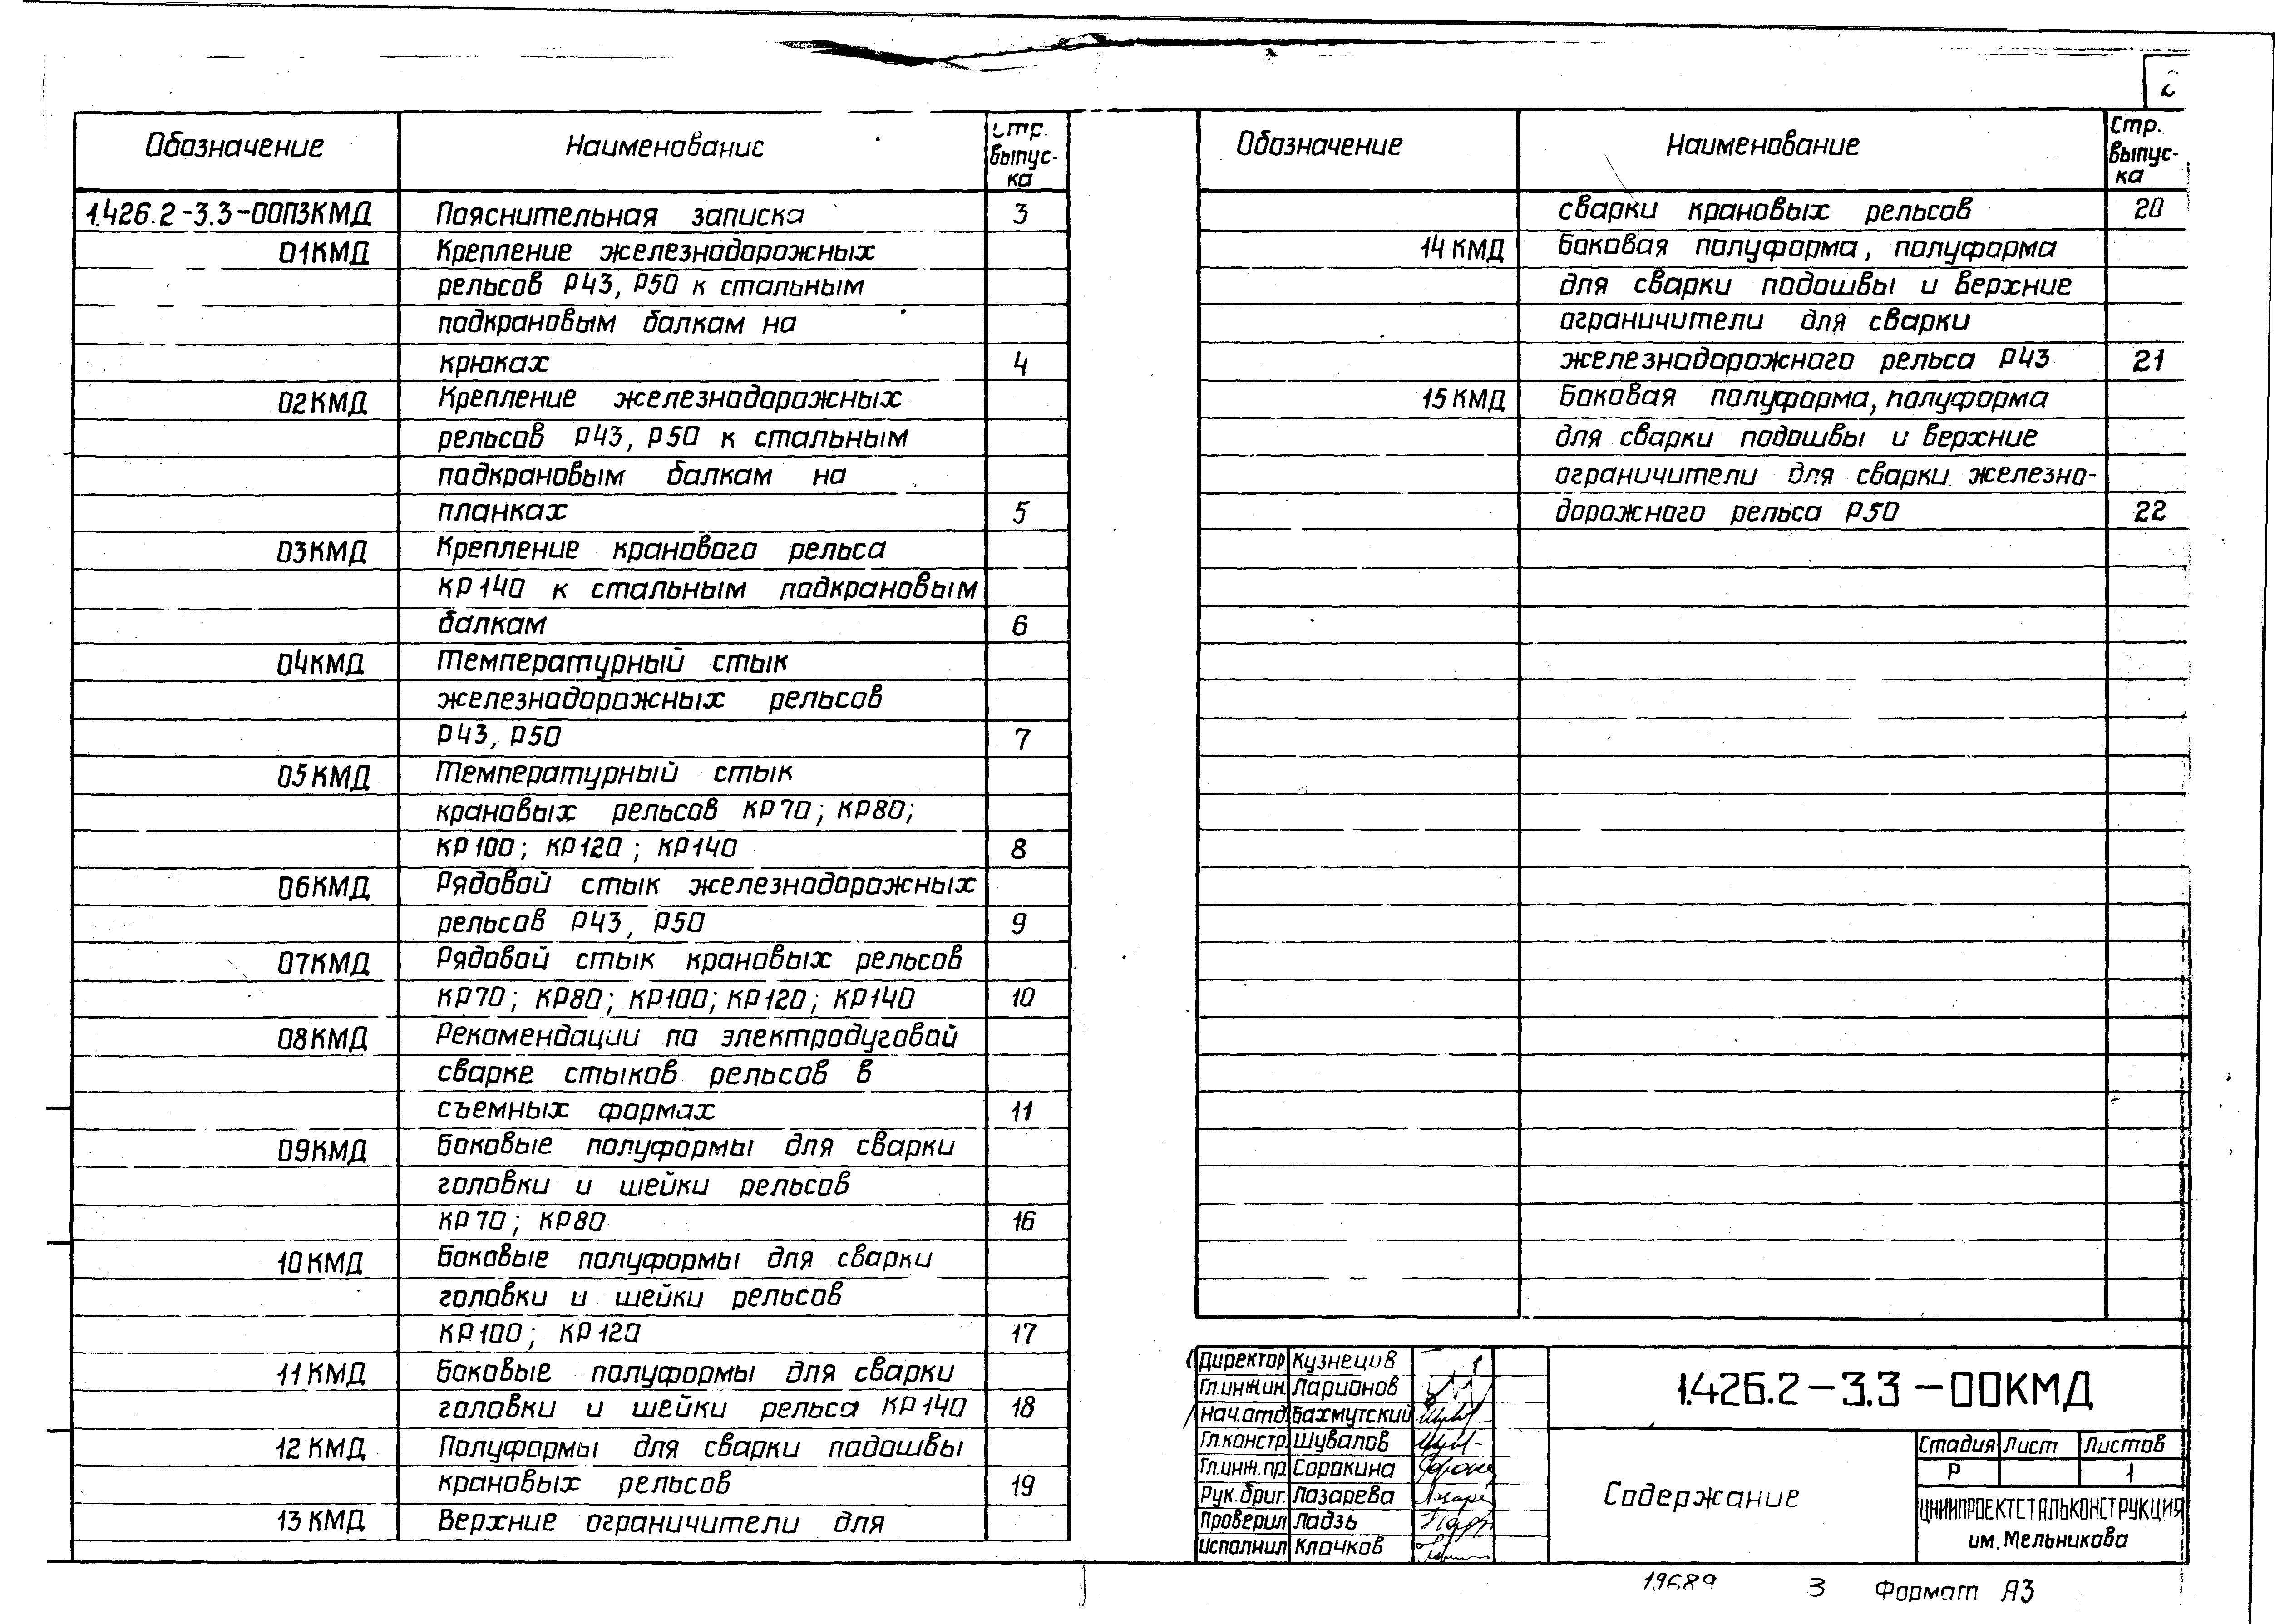 2
Обозначение Наименование Стр. выпус- ка
1.426.2-3.3-00ПЗКМД Пояснительная записка 3
01КМД Крепление железнодорожных
рельсов Р43, Р50 к стальным
подкрановым балкам на
крюках 4
02КМД Крепление железнодорожных
рельсов Р43, Р50 к стальным
подкрановым балкам на
планках 5
03КМД Крепление кранового рельса
КР140 к стальным подкрановым
балкам 6
04КМД Температурный стык
железнодорожных рельсов
Р43, Р50 7
05КМД Температурный стык
крановых рельсов КР70; КР80;
КР100; КР120; КР140 8
06КМД Рядовой стык железнодорожных
рельсов Р43, Р50 9
07КМД Рядовой стык крановых рельсов
КР70; КР80; КР100; КР120; КР140 10
08КМД Рекомендации по электродуговой
сварке стыков рельсов в
съемных формах 11
09КМД Боковые полуформы для сварки
головки и шейки рельсов
КР70; КР80 16
10КМД Боковые полуформы для сварки
головки и шейки рельсов
КР100; КР120 17
11КМД Боковые полуформы для сварки
головки и шейки рельса КР140 18
12КМД Полуформы для сварки подошвы
крановых рельсов 19
13КМД Верхние ограничители для
Обозначение Наименование Стр. выпус- ка
сварки крановых рельсов 20
14КМД Боковая полуформа, полуформа
для сварки подошвы и верхние
ограничители для сварки
железнодорожного рельса Р43 21
15КМД Боковая полуформа, полуформа
для сварки подошвы и верхние
ограничители для сварки железно-
дорожного рельса Р50 22
Директор Кузнецов
Гл.инжин. Ларионов
Нач.отд. Бахмутский
Гл.констр. Шувалов
Гл.инж.пр. Сорокина
Рук.бриг. Лазарева
Проверил Ладзь
Исполнил Клочков
1.426.2-3.3-00КМД
Содержание
Стадия Лист Листов
Р 1
ЦНИИПРОЕКТСТАЛЬКОНСТРУКЦИЯ
им. Мельникова
19689 3 Формат А3